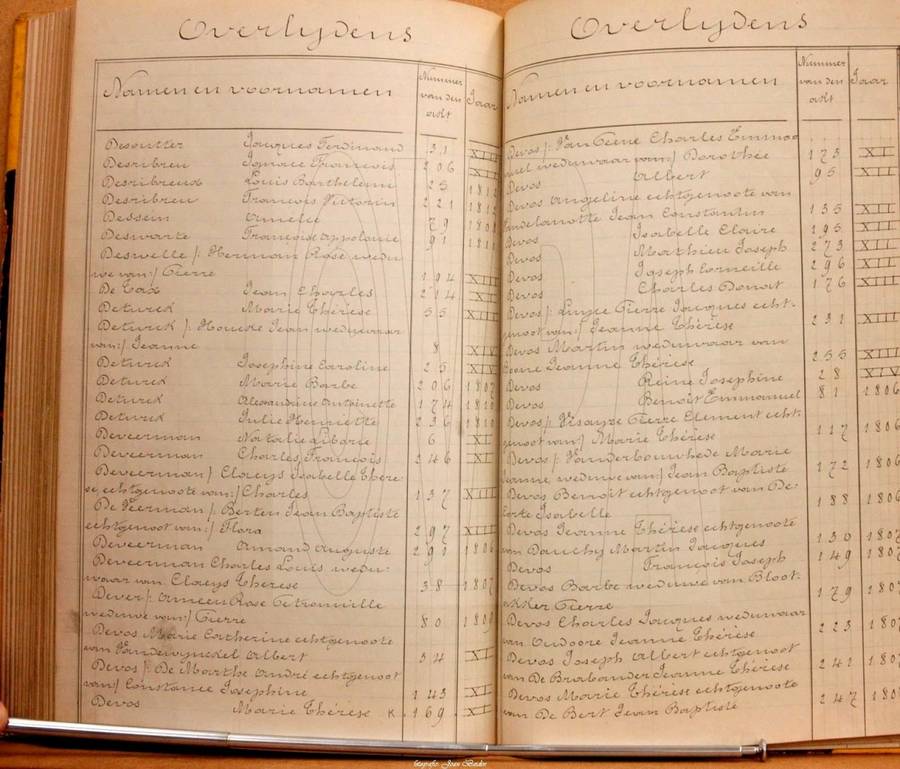 Overlydens
Namen en voornamen Nummer van den adt Jaar
Desoutter Jacques Ferdinand 31 XII
Desribreu Ignace François 206 XII
Desribreux Louis Barthelème 25 1812
Desribreu François Victorin 221 1812
Dessein Amelie 79 1808
Deswarte Françoise Appolonie 91 1811
Deswelle /: Herman Rose wedu
we van:/ Pierre 194 XIII
De Tax Jean Charles 214 XI
Deturck Marie Thérèse 55 XIII
Deturck /: Houcke Jean weduwaar
van:/ Jeanne 8 XIV
Deturck Josephine Caroline 25 XIV
Deturck Marie Barbe 206 1807
Deturck Alexandrine Antoinette 174 1810
Deturck Julie Henriette 236 1810
Deveerman Natalie Liborie 6 XI
Deveerman Charles François 246 XI
Deveerman / Claeys Isabelle Thère-
se, echtgenoote van:/ Charles 137 XIII
De Veerman /: Berten Jean Baptiste
echtgenoot van:/ Flora 297 XIII
Deveerman Amand Auguste 291 1806
Deveerman Charles Louis wedu-
waar van Claeys Therese 38 1807
Dever /: Ameen Rose Petronille
weduwe van:/ Pierre 80 1808
Devos Marie Catherine echtgenoote
van Vandewynckel Albert 34 XI
Devos /: De Marthe André echtgenoot
van:/ Constance Josephine 143 XI
Devos Marie Thérèse K. 169 XI
Overlydens
Namen en voornamen Nummer van den adt Jaar
Devos /: Van Ceene Charles Emman
uel weduwaar van:/ Dorothée 173 XI
Devos Albert 95 XII
Devos Angeline echtgenoote van
Vandelanotte Jean Constantin 135 XII
Devos Isabelle Claire 195 XII
Devos Mathieu Joseph 273 XII
Devos Joseph Corneille 296 XII
Devos Charles Donat 176 XIII
Devos /: Pierre Jacques echt-
genoot van:/ Jeanne Thérèse 231 XIII
Devos Martin weduwaar van
Jeanne Thérèse 255 XIII
Devos Reine Josephine 28 XIV
Devos Benoit Emmanuel 81 1806
Devos /: Pierre Clement echt-
genoot van/ Marie Thérèse 117 1806
Devos /: Vanderbounhede Marie
Jeanne weduwe van:/ Jean Baptiste 172 1806
Devos Benoit echtgenoot van De-
corte Isabelle 188 1806
Devos Jeanne Thérèse echtgenoote
van Dauchy Martin Jacques 130 1807
Devos François Joseph 149 1807
Devos Barbe weduwe van Bloot-
akker Pierre 179 1807
Devos Charles Jacques weduwaar
van Oudoore Jeanne Thérèse 223 1807
Devos Joseph Albert echtgenoot
van De Brabander Jeanne Thérèse 241 1807
Devos Marie Thérèse echtgenoote
van De Bert Jean Baptiste 247 1807
fotografie: Joan Baidon